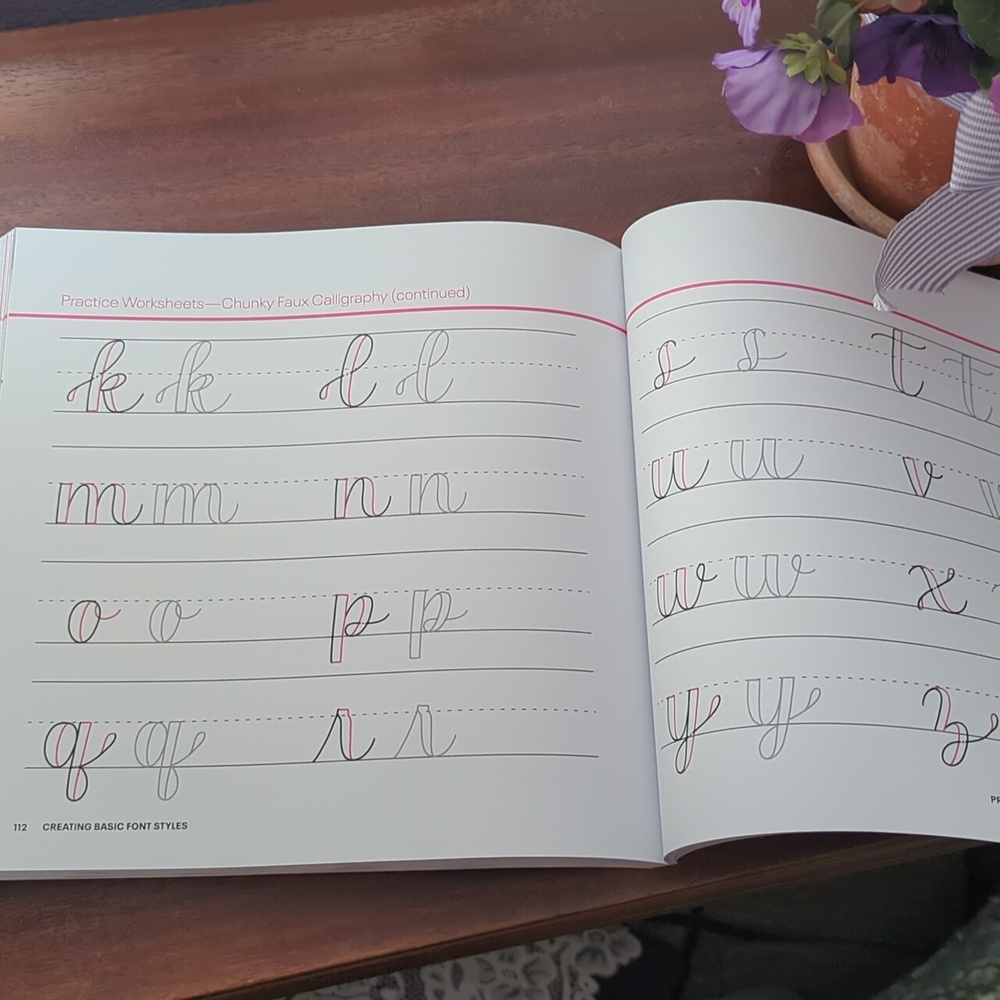 Practice Worksheets—Chunky Faux Calligraphy (continued)
k k l l
m m n n
o o p p
q q r r
112 CREATING BASIC FONT STYLES
s s t t
u u v v
w w x
y y z